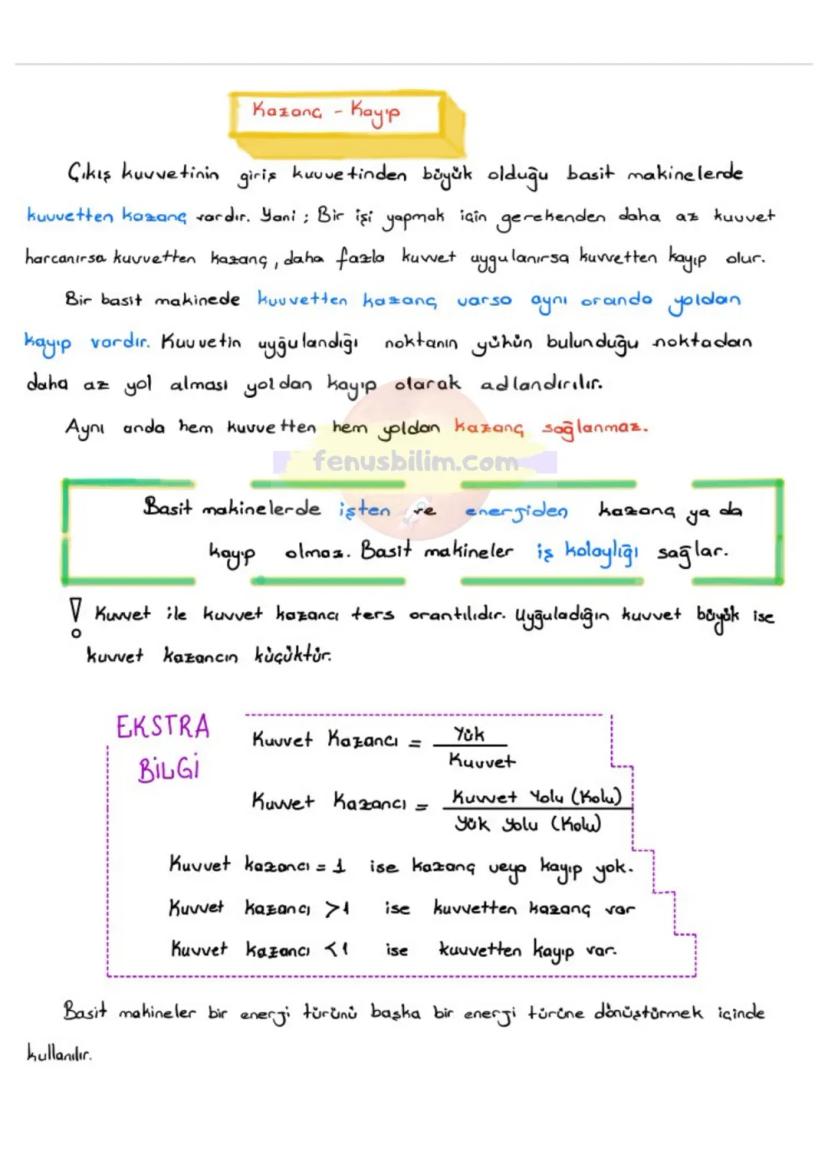 Kazanç - Kayıp
Çıkış kuvvetinin giriş kuvvetinden büyük olduğu basit makinelerde
kuvvetten kazanç vardır. Yani ; Bir işi yapmak için gerekenden daha az kuvvet
harcanırsa kuvvetten kazanç, daha fazla kuvvet uygulanırsa kuvvetten kayıp olur.
Bir basit makinede kuvvetten kazanç varsa aynı oranda yoldan
kayıp vardır. Kuvvetin uyğulandığı noktanın yükün bulunduğu noktadan
daha az yol alması yoldan kayıp olarak adlandırılır.
Aynı anda hem kuvvetten hem yoldan kazanç sağlanmaz.
fenusbilim.com
Basit makinelerde işten ve enerjiden kazanç ya da
kayıp olmaz. Basit makineler iş kolaylığı sağlar.
! Kuvvet ile kuvvet kazancı ters orantılıdır. Uyğuladığın kuvvet büyük ise
kuvvet kazancın küçüktür.
EKSTRA
BİLGİ
Kuvvet Kazancı = Yük
Kuvvet
Kuvvet Kazancı = Kuvvet Yolu (Kolu)
Yük Yolu (Kolu)
Kuvvet kazancı = 1 ise kazanç veya kayıp yok.
Kuvvet kazancı >1 ise kuvvetten kazanç var
Kuvvet kazancı <1 ise kuvvetten kayıp var.
Basit makineler bir enerji türünü başka bir enerji türüne dönüştürmek içinde
kullanılır.